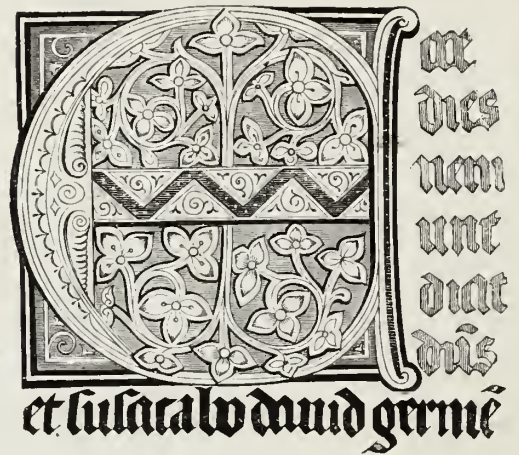 Ecce
dies
veni
unt
dicit
dn̄s
et suſcitabo dauid germē